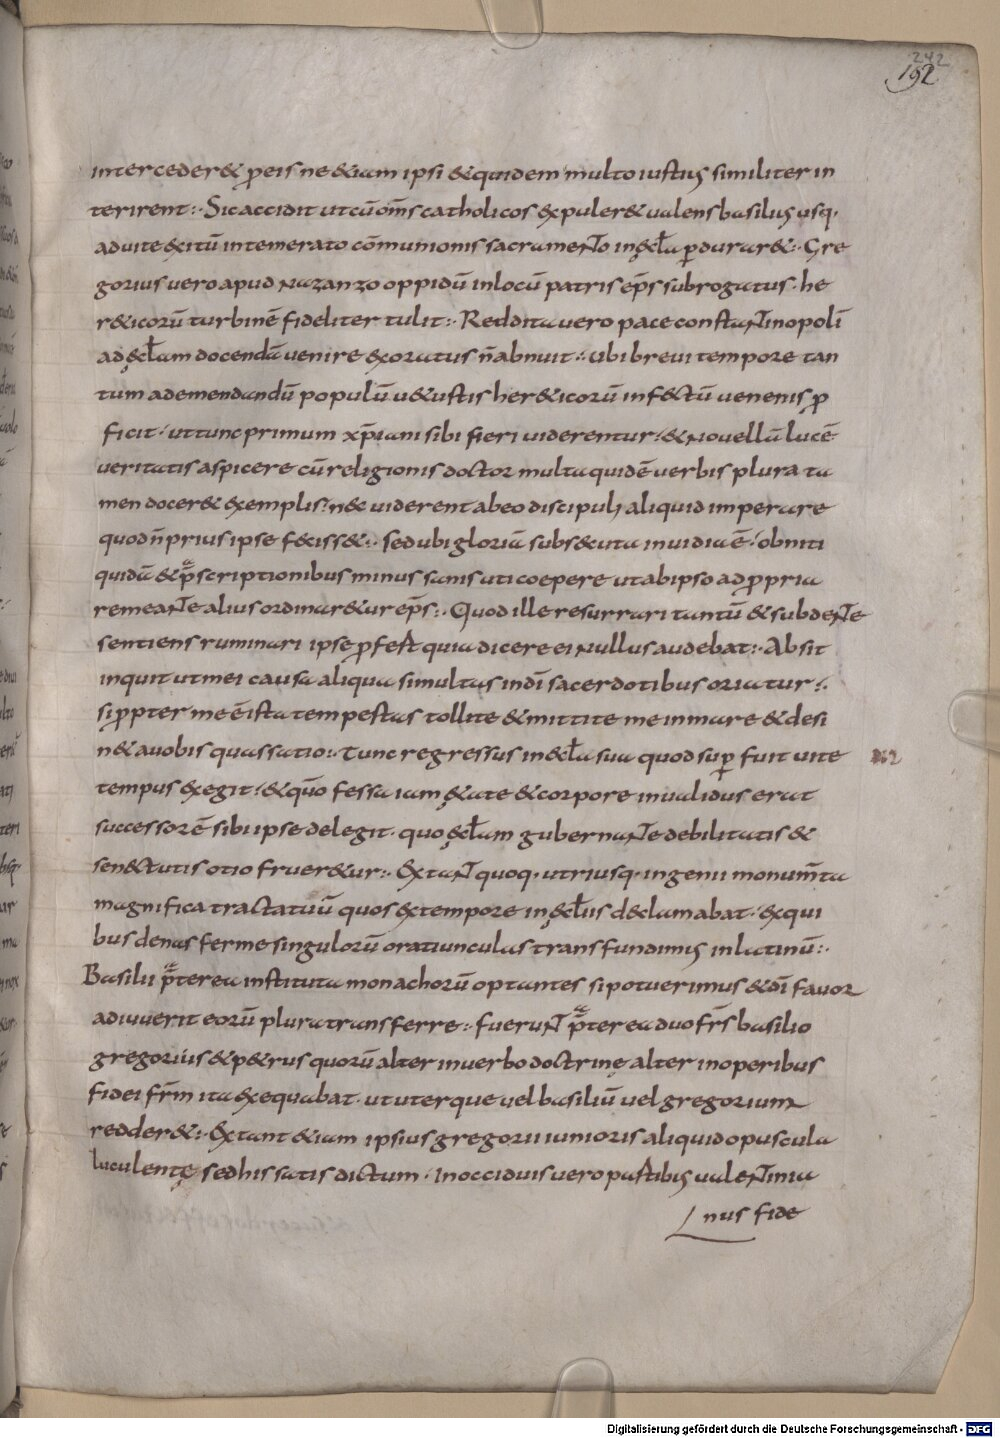 242
192
interceder& p̱eis ne &iam ipsi &quidem multo iustius similiter in
terirent:· Sic accidit ut cū om̄s catholicos expuler& ualens basilius usq·
ad uite exitū intemerato cōmunionis sacramento in ęcl̄a ꝑdurar&:· Gre
gorius uero apud nazanzo oppidū in locū patris ep̄s subrogatus· he
r&icorū turbinē fideliter tulit:· Reddita uero pace constantinopolī
ad ęcl̄am docendā uenire exoratus n̄ abnuit:· ubi breui tempore tan
tum ad emendandū populū u&ustis her&icorū infectū uenenis ꝓ
ficit· ut tunc primum xp̄iani sibi fieri uiderentur· & nouellā lucē
ueritatis aspicere cū religionis doctor multa quidē uerbis plura ta
men docer& exemplis· nec uiderent ab eo discipuli aliquid imperare
quod n̄ prius ipse feciss&:· sed ubi gloriā subsecuta inuidia ē· obniti
quidā & p̄scriptionibus minus sanis uti coepere ut ab ipso ad ꝓpria
remeante alius ordinar&ur ep̄s:· Quod ille resurrari tantū & sub dente
sentiens ruminari ipse ꝓfest quia dicere ei nullus audebat:· Absit
inquit ut mei causa aliqua simultas in dī sacerdotibus oriatur:·
si ꝓpter me ē ista tempestas tollite & mittite me in mare & desi
n& a uobis quassatio:· Tunc regressus in ecl̄a sua quod suꝑfuit uite
tempus exegit· & qūo fessa iam ętate & corpore inualidus erat
successorē sibi ipse delegit· quo ęcl̄am gubernante debilitatis &
senectutis otio fruer&ur:· Extant quoq· utriusq· ingenii monum̄ta
magnifica tractatuū quos extempore in ęcl̄iis declamabat· ex qui
bus denas ferme singulorū oratiunculas transfundimus in latinū:·
Basilii p̄terea instituta monachorū optantes si potuerimus & dī fauor
adiuuerit eorū plura transferre:· fuerunt p̄terea duo fr̄s basilio
gregorius & p&rus quorū alter in uerbo doctrinę alter in operibus
fidei fr̄m ita exequabat· ut uterque uel basiliū uel gregorium
redder&:· Extant &iam ipsius gregorii iunioris aliquid opuscula
luculentę sed his satis dictum· In occiduis uero partibus ualentinia
nus fide
Digitalisierung gefördert durch die Deutsche Forschungsgemeinschaft - DFG